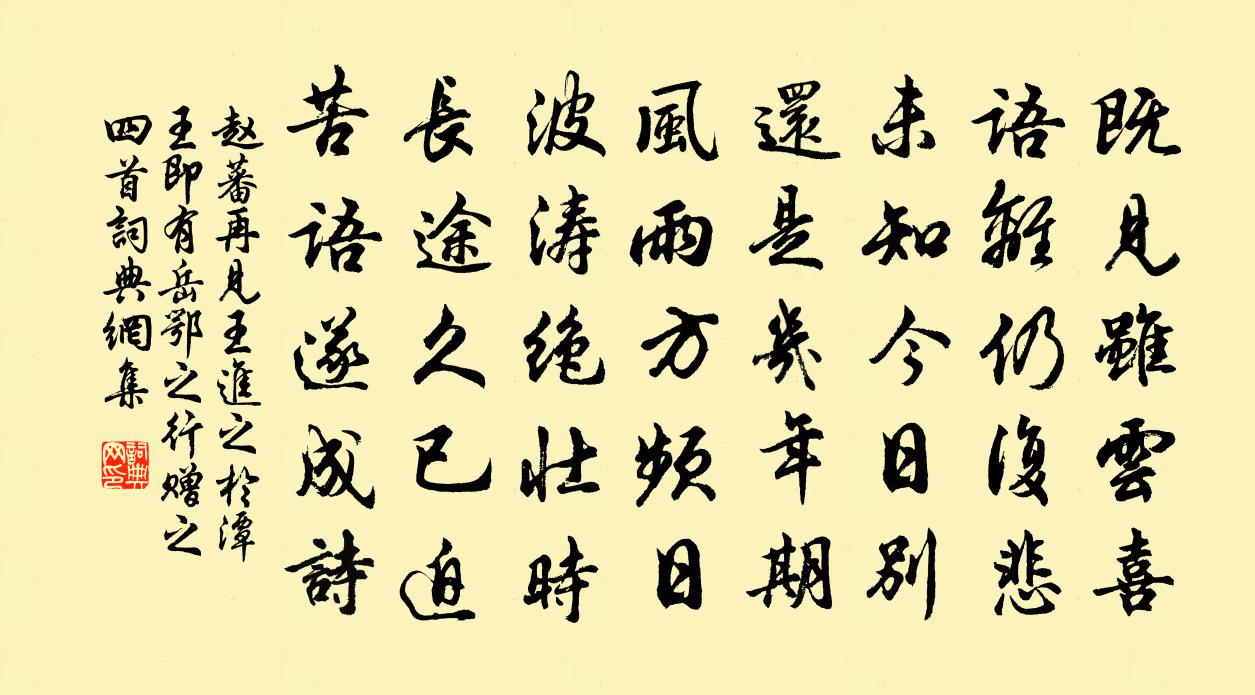 既見雖雲喜
語離仍復悲
未知今日別
還是幾年期
風雨方頻日
波涛绝壮時
長途久已迫
苦語遂成詩
赵蕃再見王進之於潭
王即有岳鄂之行赠之
四首詞典網集
詞典网印